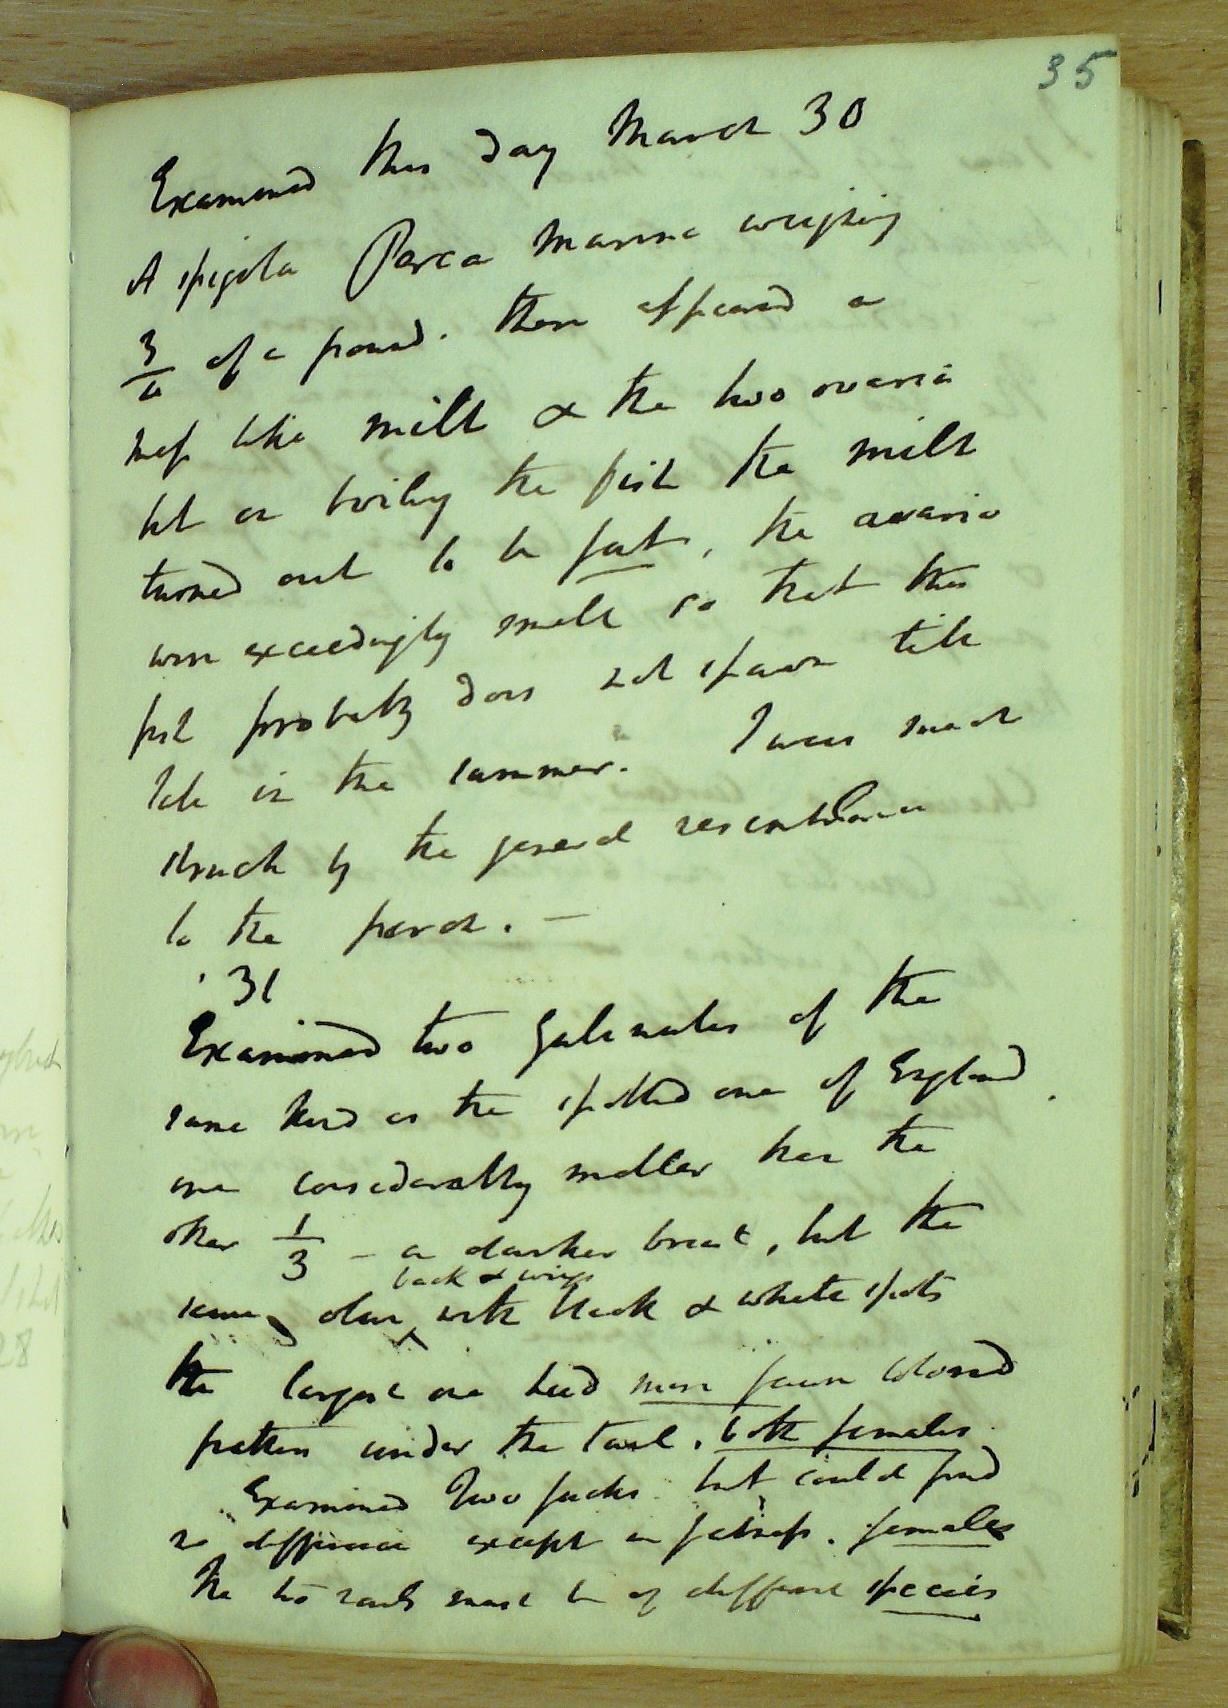 35
Examined this day March 30
A spigola Perca Marina weighing
3/4 of a pound. there appeared a
mass like milt & the two ovaria
but on boiling the fish the milt
turned out to be fat, the ovaria
were exceedingly small so that this
fish probably does not spawn till
late in the summer. I was much
struck by the general resemblance
to the perch. —
31
Examined two Galinules of the
same kind as the spotted one of England
one considerably smaller than the
other 1/3 – a darker breast, but the
back & wings
same with black & white spots
the largest one had more fawn colored
feathers under the tail. both females
Examined Two Jacks but could find
no difference except in fatness. females
The two rails must be of different species